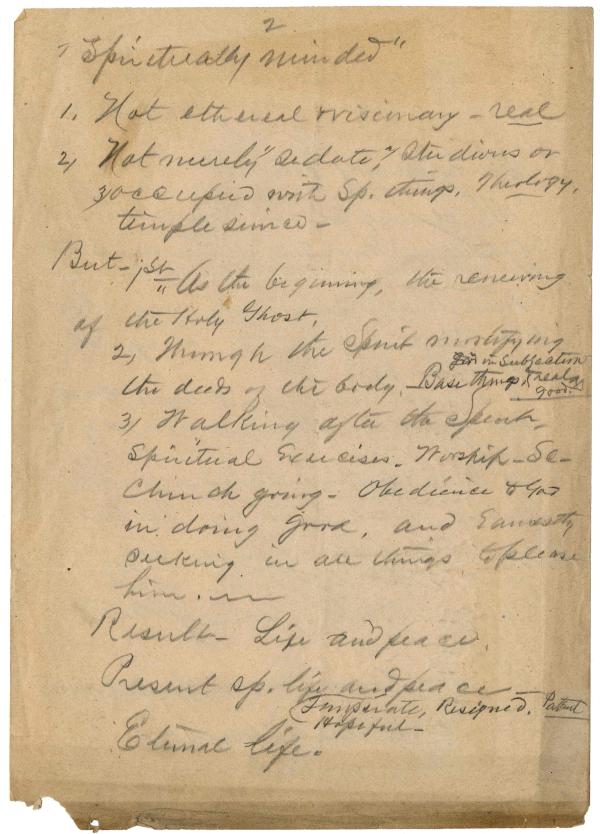 2
"Spiritually minded"
1. Not ethereal & visionary - real
2, Not merely "sedate," studious or
3, occupied with Sp. things, Theology,
temple service -
But - 1st As the beginning, the renewing
of the Holy Ghost.
2, Through the Spirit mortifying
in subjection
the deeds of the body. - Base things & real good.
3, Walking after the Spirit,
Spiritual Exercises. Worship -
Church going - Obedience to God
in doing good, and Earnestly
seeking in all things to please
him. -
Result - Life and peace.
Present sp. life and peace -
Temperate, Resigned, Patient
Hopeful -
Eternal life.